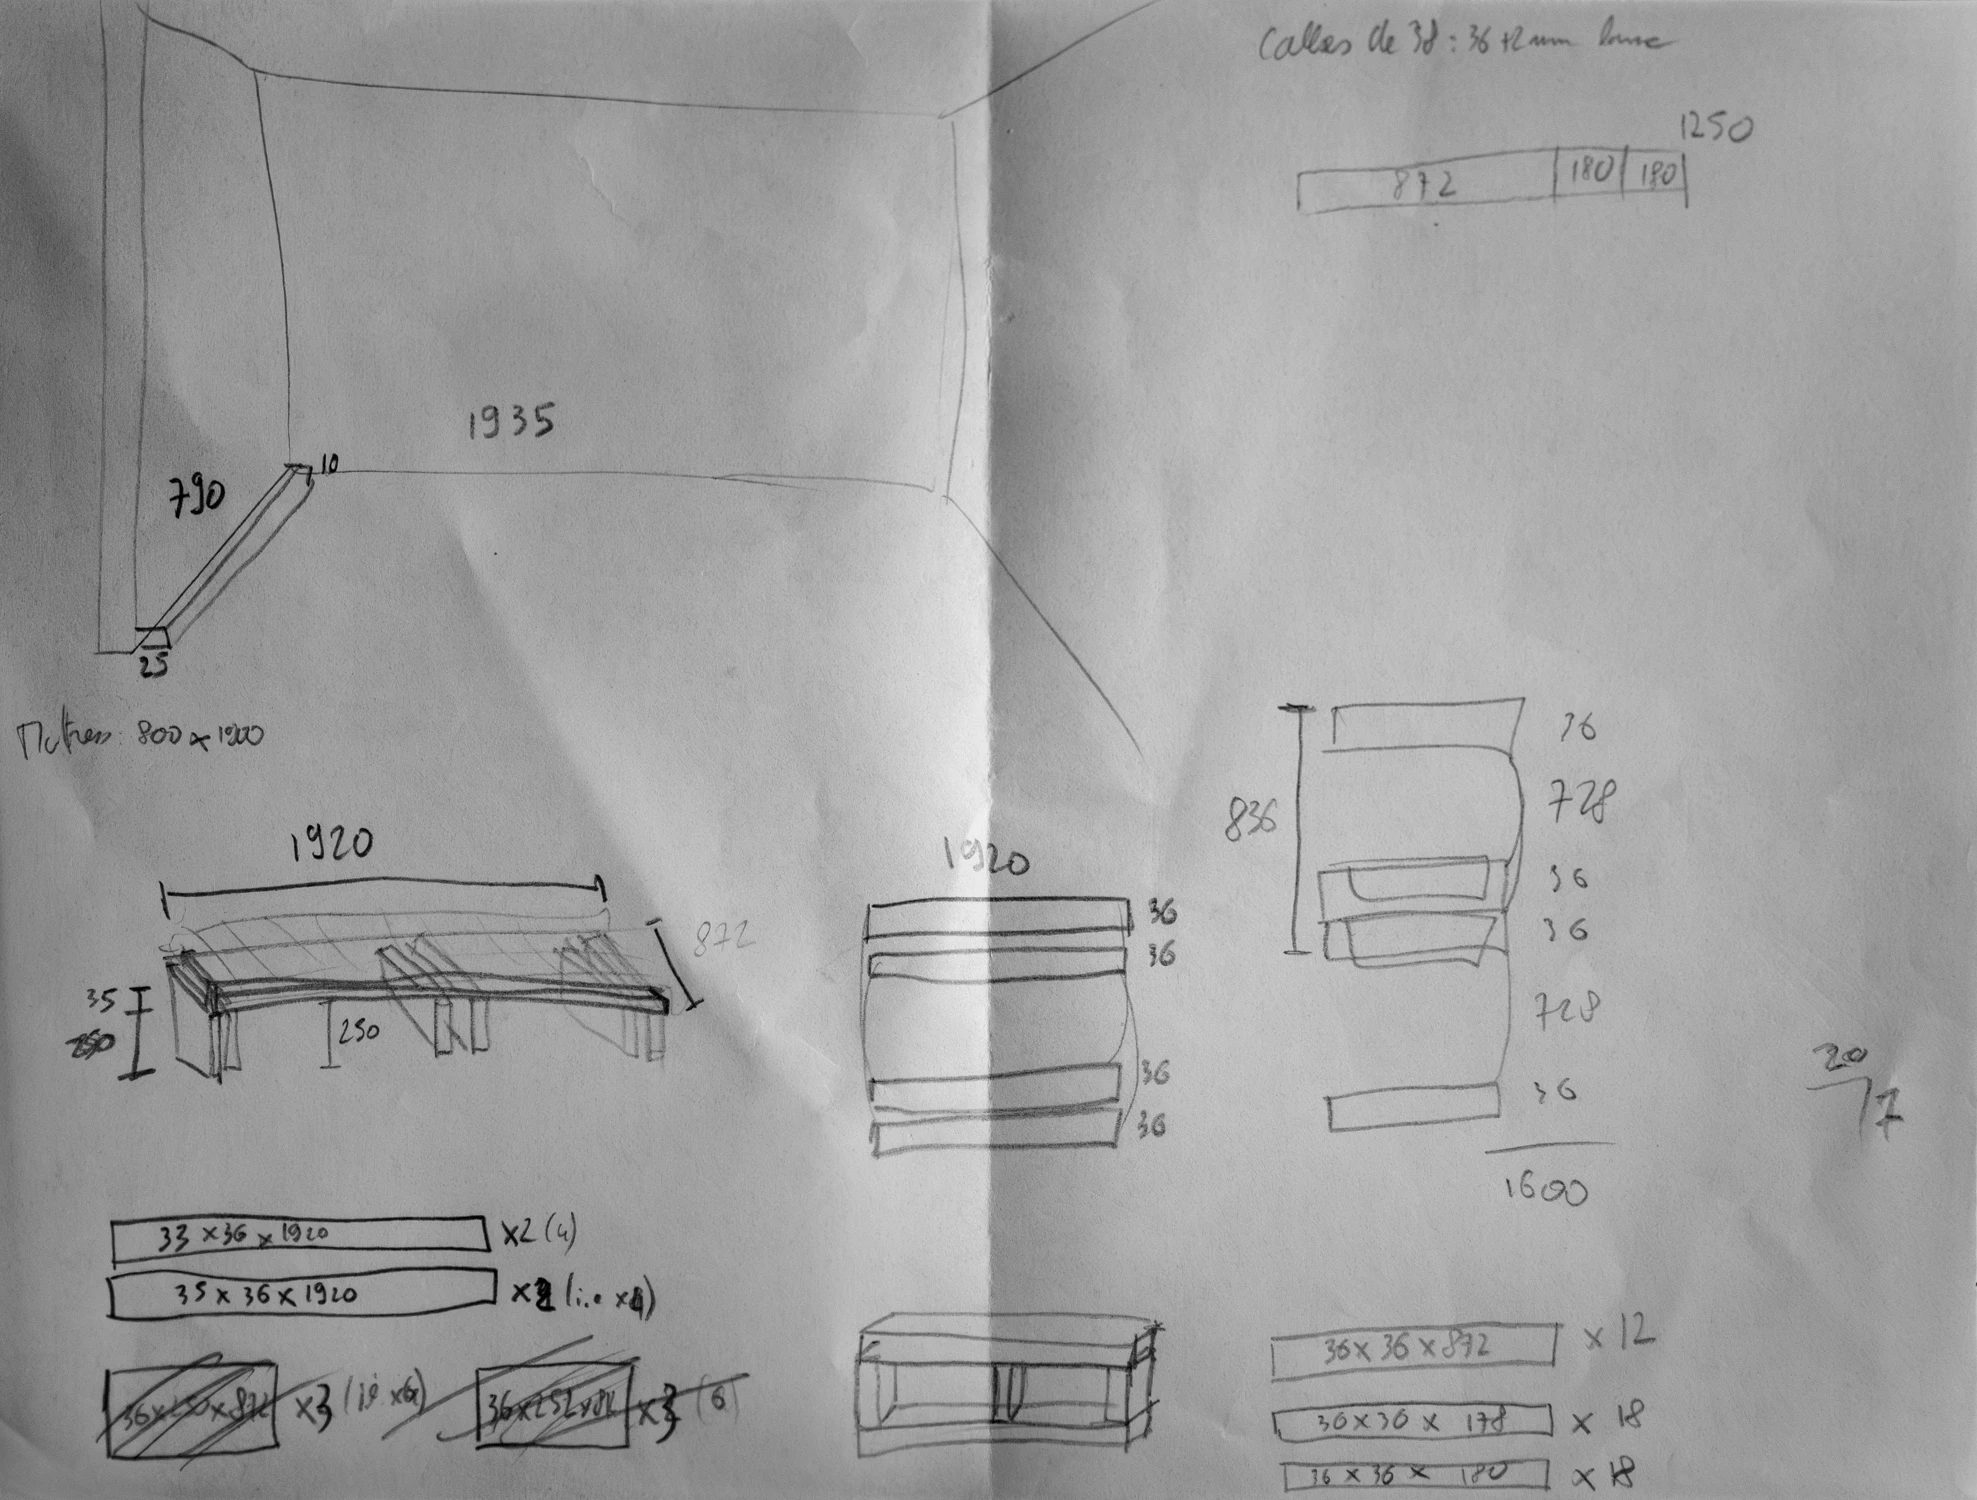 Calles de 38 : 36 +2mm
1250
872 180 180
1935
790
10
25
800 x 1900
1920
872
35
250
250
1920
36
36
36
36
836
36
728
36
36
728
36
1600
20
7
33 x 36 x 1920 x2 (4)
35 x 36 x 1920 x2 (i.e x4)
36x250x872 x3 (ie x6)
x3 (6)
36 x 36 x 872 x 12
36 x 36 x 178 x 18
36 x 36 x 180 x 18